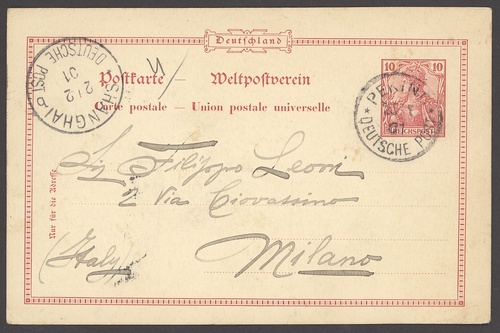 Deutschland
Postkarte – Weltpostverein
Carte postale – Union postale universelle
10 10
REICHSPOST
PEKING
01
* DEUTSCHE
SHANGHAI
DEUTSCHE POST
2/2
01
Nur für die Adresse
Sig Filippo Leoni
2 Via Chiovassino
Milano
(Italy)